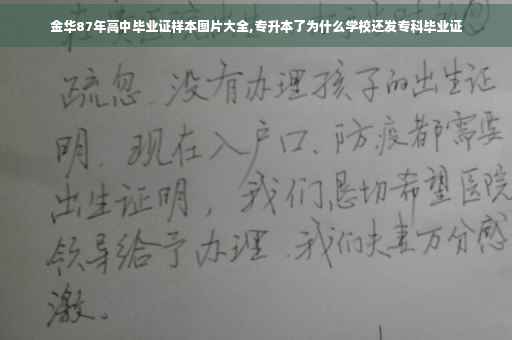 金华87年高中毕业证样本图片大全,专升本了为什么学校还发专科毕业证
疏忽、没有办理孩子的出生证
明、现在入户口、防疫都需要
出生证明，我们恳切希望医院
领导给予办理、我们夫妻万分感
激。